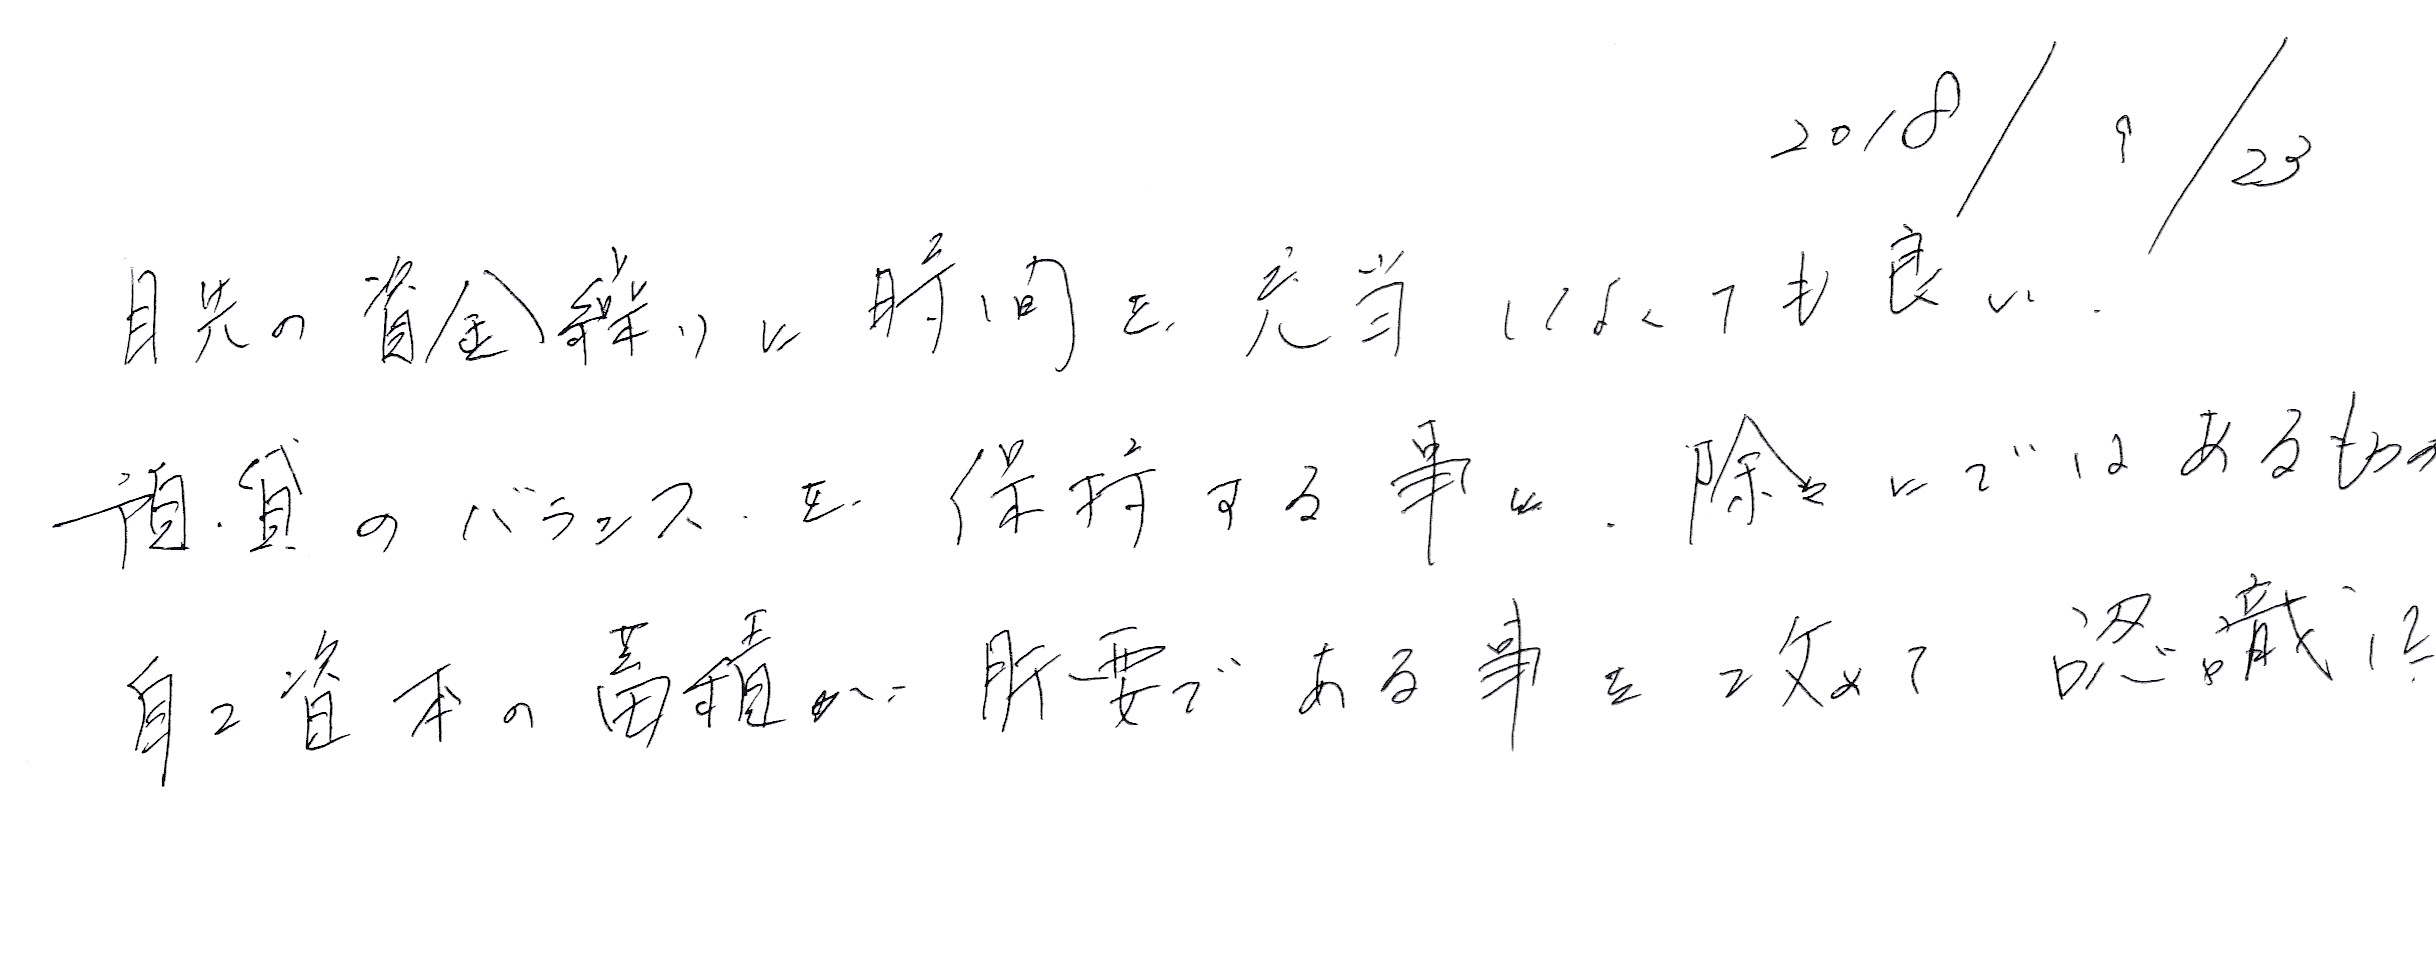 2018/9/23
目先の資金繰りに時間を充当しなくても良い.
預.貸のバランス.を保持する事と.除々にではあるものの
自己資本の蓄積が肝要である事を改めて認識した